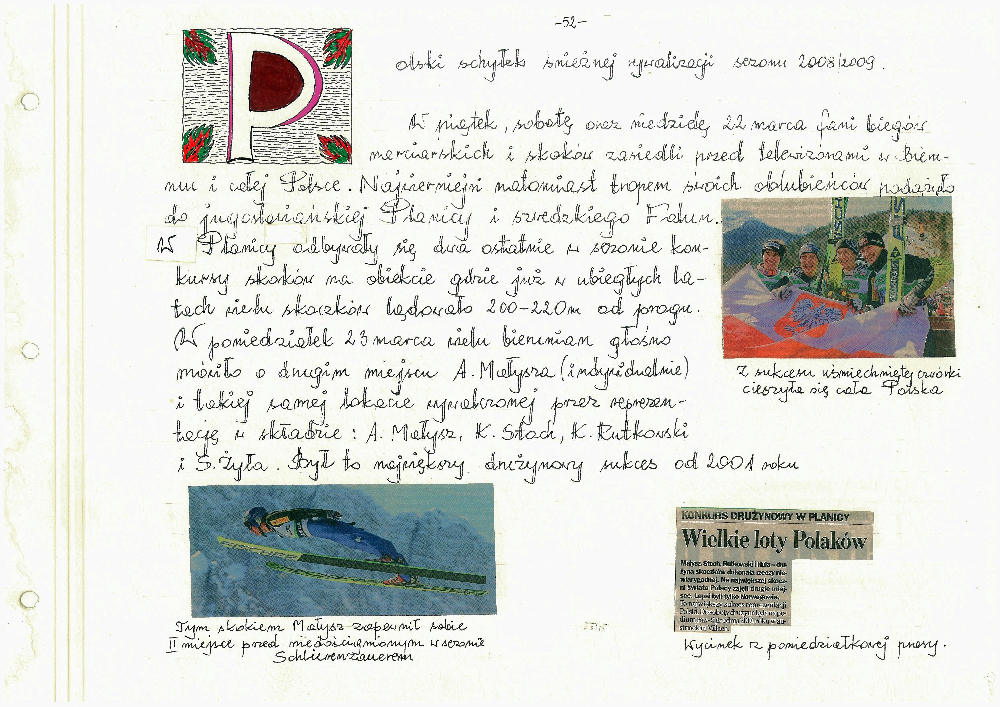 -52-
Polski schyłek śnieżnej rywalizacji sezonu 2008/2009.
W piątek, sobotę oraz niedzielę 22 marca fani biegów
narciarskich i skoków zasiedli przed telewizorami w Bieru-
niu i całej Polsce. Najwierniejsi natomiast tropem swoich ulubieńców podążyło
do jugosłowiańskiej Planicy i szwedzkiego Falun.
W Planicy odbywały się dwa ostatnie w sezonie kon-
kursy skoków na obiekcie gdzie już w ubiegłych la-
tach wielu skoczków lądowało 200-220m od progu.
W poniedziałek 23 marca wielu bierunian głośno
mówiło o drugim miejscu A. Małysza (indywidualnie)
i takiej samej lokacie wywalczonej przez reprezen-
tację w składzie: A. Małysz, K. Stoch, Ł. Rutkowski
i P. Żyła. Był to największy drużynowy sukces od 2001 roku
Z sukcesu uśmiechniętej czwórki
cieszyła się cała Polska
Tym skokiem Małysz zapewnił sobie
II miejsce przed niedoścignionym w sezonie
Schlierenzauerem
KONKURS DRUŻYNOWY W PLANICY
Wielkie loty Polaków
Małysz, Stoch, Rutkowski i Żyła – dru-
żyna skoczków dokonała rzeczy nie-
wiarygodnej. Na największej skocz-
ni świata Polacy zajęli drugie miej-
sce. Lepsi byli tylko Norwegowie.
Wycinek z poniedziałkowej prasy.